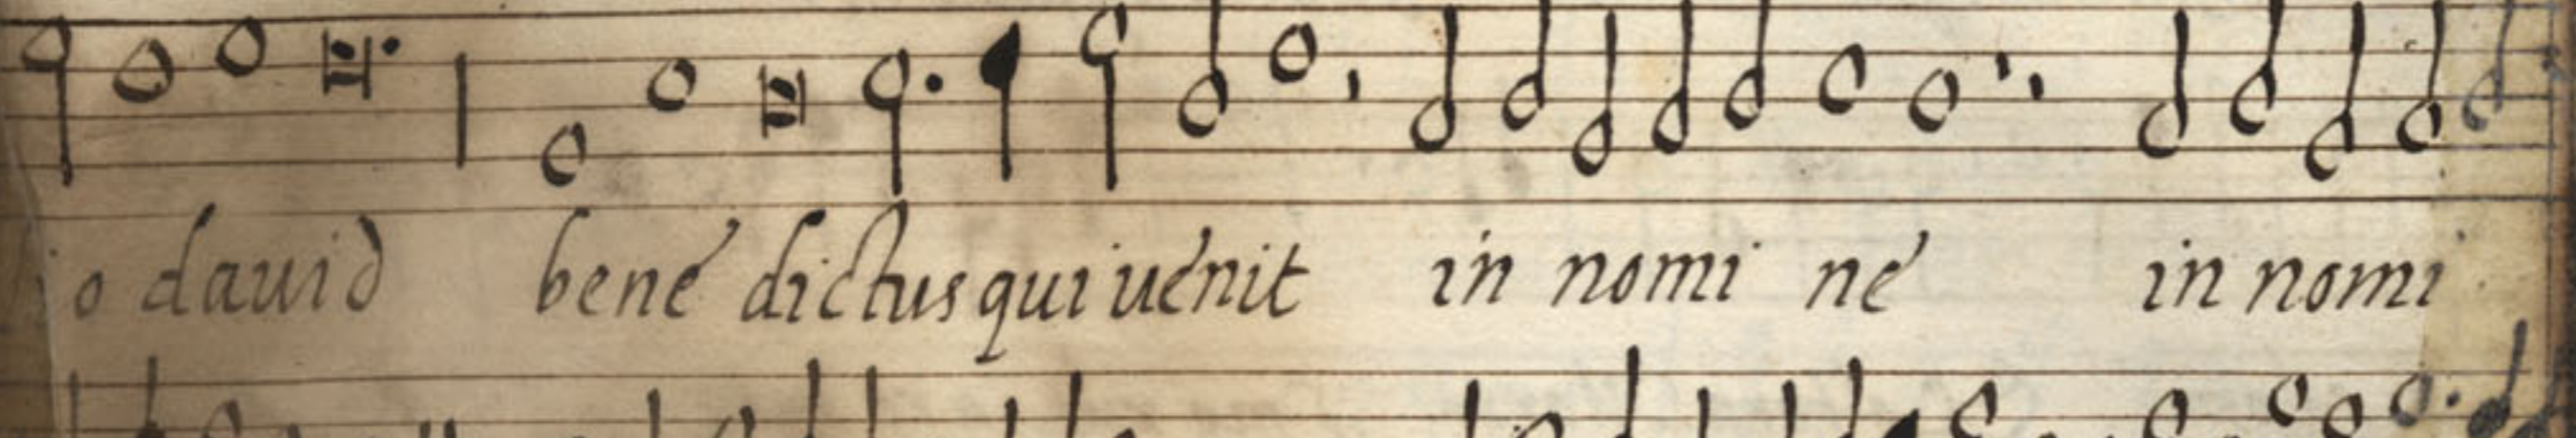 io dauid bene dictus qui uenit in nomi ne in nomi